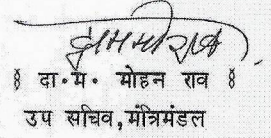 दा.म. मोहन राव
उप सचिव,मंत्रिमंडल